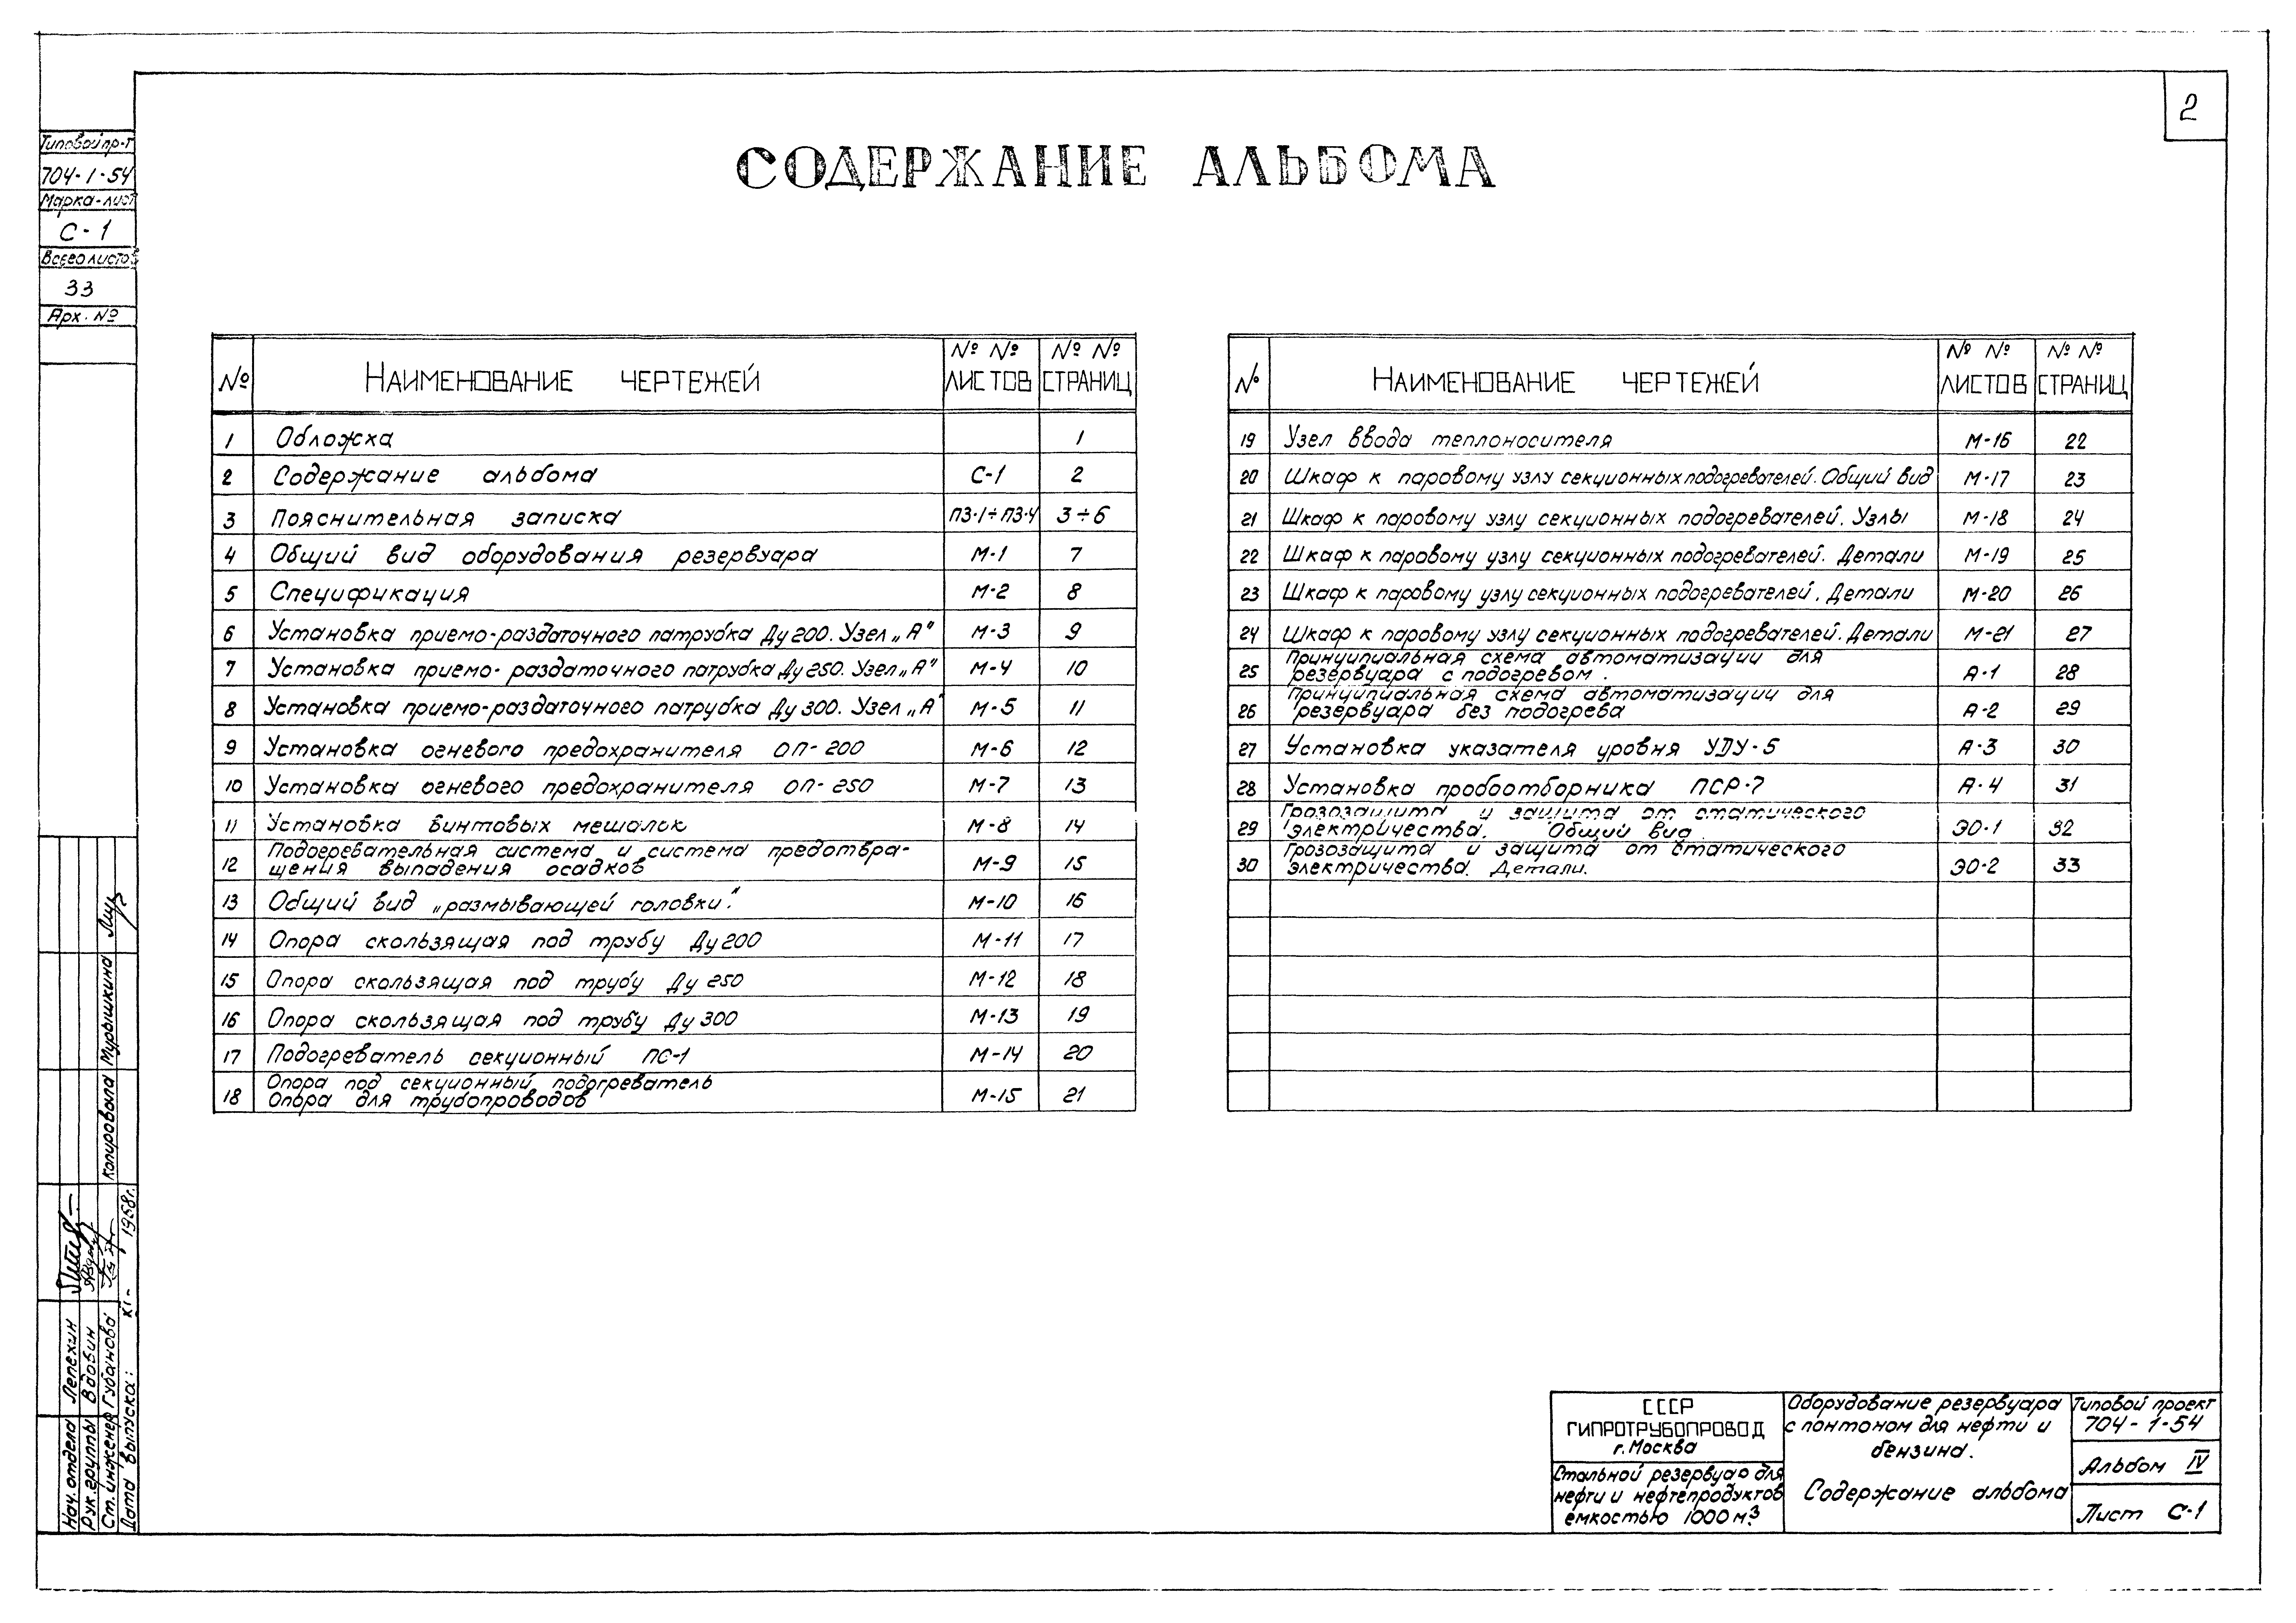 2
Типовой пр-т
704-1-54
Марка-лист
С-1
Всего листов
33
Арх. №
СОДЕРЖАНИЕ АЛЬБОМА
№ НАИМЕНОВАНИЕ ЧЕРТЕЖЕЙ №№ ЛИСТОВ №№ СТРАНИЦ
1 Обложка 1
2 Содержание альбома С-1 2
3 Пояснительная записка ПЗ-1÷ПЗ-4 3÷6
4 Общий вид оборудования резервуара М-1 7
5 Спецификация М-2 8
6 Установка приемо-раздаточного патрубка Ду 200. Узел „А" М-3 9
7 Установка приемо-раздаточного патрубка Ду 250. Узел „А" М-4 10
8 Установка приемо-раздаточного патрубка Ду 300. Узел „А" М-5 11
9 Установка огневого предохранителя ОП-200 М-6 12
10 Установка огневого предохранителя ОП-250 М-7 13
11 Установка винтовых мешалок М-8 14
12 Подогревательная система и система предотвра-
щения выпадения осадков М-9 15
13 Общий вид „размывающей головки". М-10 16
14 Опора скользящая под трубу Ду 200 М-11 17
15 Опора скользящая под трубу Ду 250 М-12 18
16 Опора скользящая под трубу Ду 300 М-13 19
17 Подогреватель секционный ПС-1 М-14 20
18 Опора под секционный подогреватель
Опора для трубопроводов М-15 21
№ НАИМЕНОВАНИЕ ЧЕРТЕЖЕЙ №№ ЛИСТОВ №№ СТРАНИЦ
19 Узел ввода теплоносителя М-16 22
20 Шкаф к паровому узлу секционных подогревателей. Общий вид М-17 23
21 Шкаф к паровому узлу секционных подогревателей. Узлы М-18 24
22 Шкаф к паровому узлу секционных подогревателей. Детали М-19 25
23 Шкаф к паровому узлу секционных подогревателей. Детали М-20 26
24 Шкаф к паровому узлу секционных подогревателей. Детали М-21 27
25 Принципиальная схема автоматизации для
резервуара с подогревом. А-1 28
26 Принципиальная схема автоматизации для
резервуара без подогрева А-2 29
27 Установка указателя уровня УДУ-5 А-3 30
28 Установка пробоотборника ПСР-7 А-4 31
29 Грозозащита и защита от статического
электричества. Общий вид ЭО-1 32
30 Грозозащита и защита от статического
электричества. Детали. ЭО-2 33
Копировала Мурышкина
Нач. отдела Лепехин
Рук. группы Вдовин
Ст. инженер Губанова
Дата выпуска: XI - 1968г.
СССР
ГИПРОТРУБОПРОВОД
г. Москва
Стальной резервуар для
нефти и нефтепродуктов
емкостью 1000 м³
Оборудование резервуара
с понтоном для нефти и
бензина.
Содержание альбома
Типовой проект
704-1-54
Альбом IV
Лист С-1